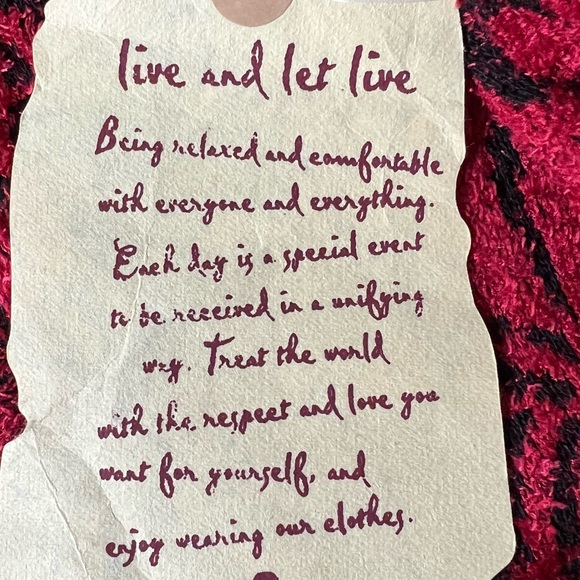 live and let live
Being relaxed and comfortable
with everyone and everything.
Each day is a special event
to be received in a unifying
way. Treat the world
with the respect and love you
want for yourself, and
enjoy wearing our clothes.